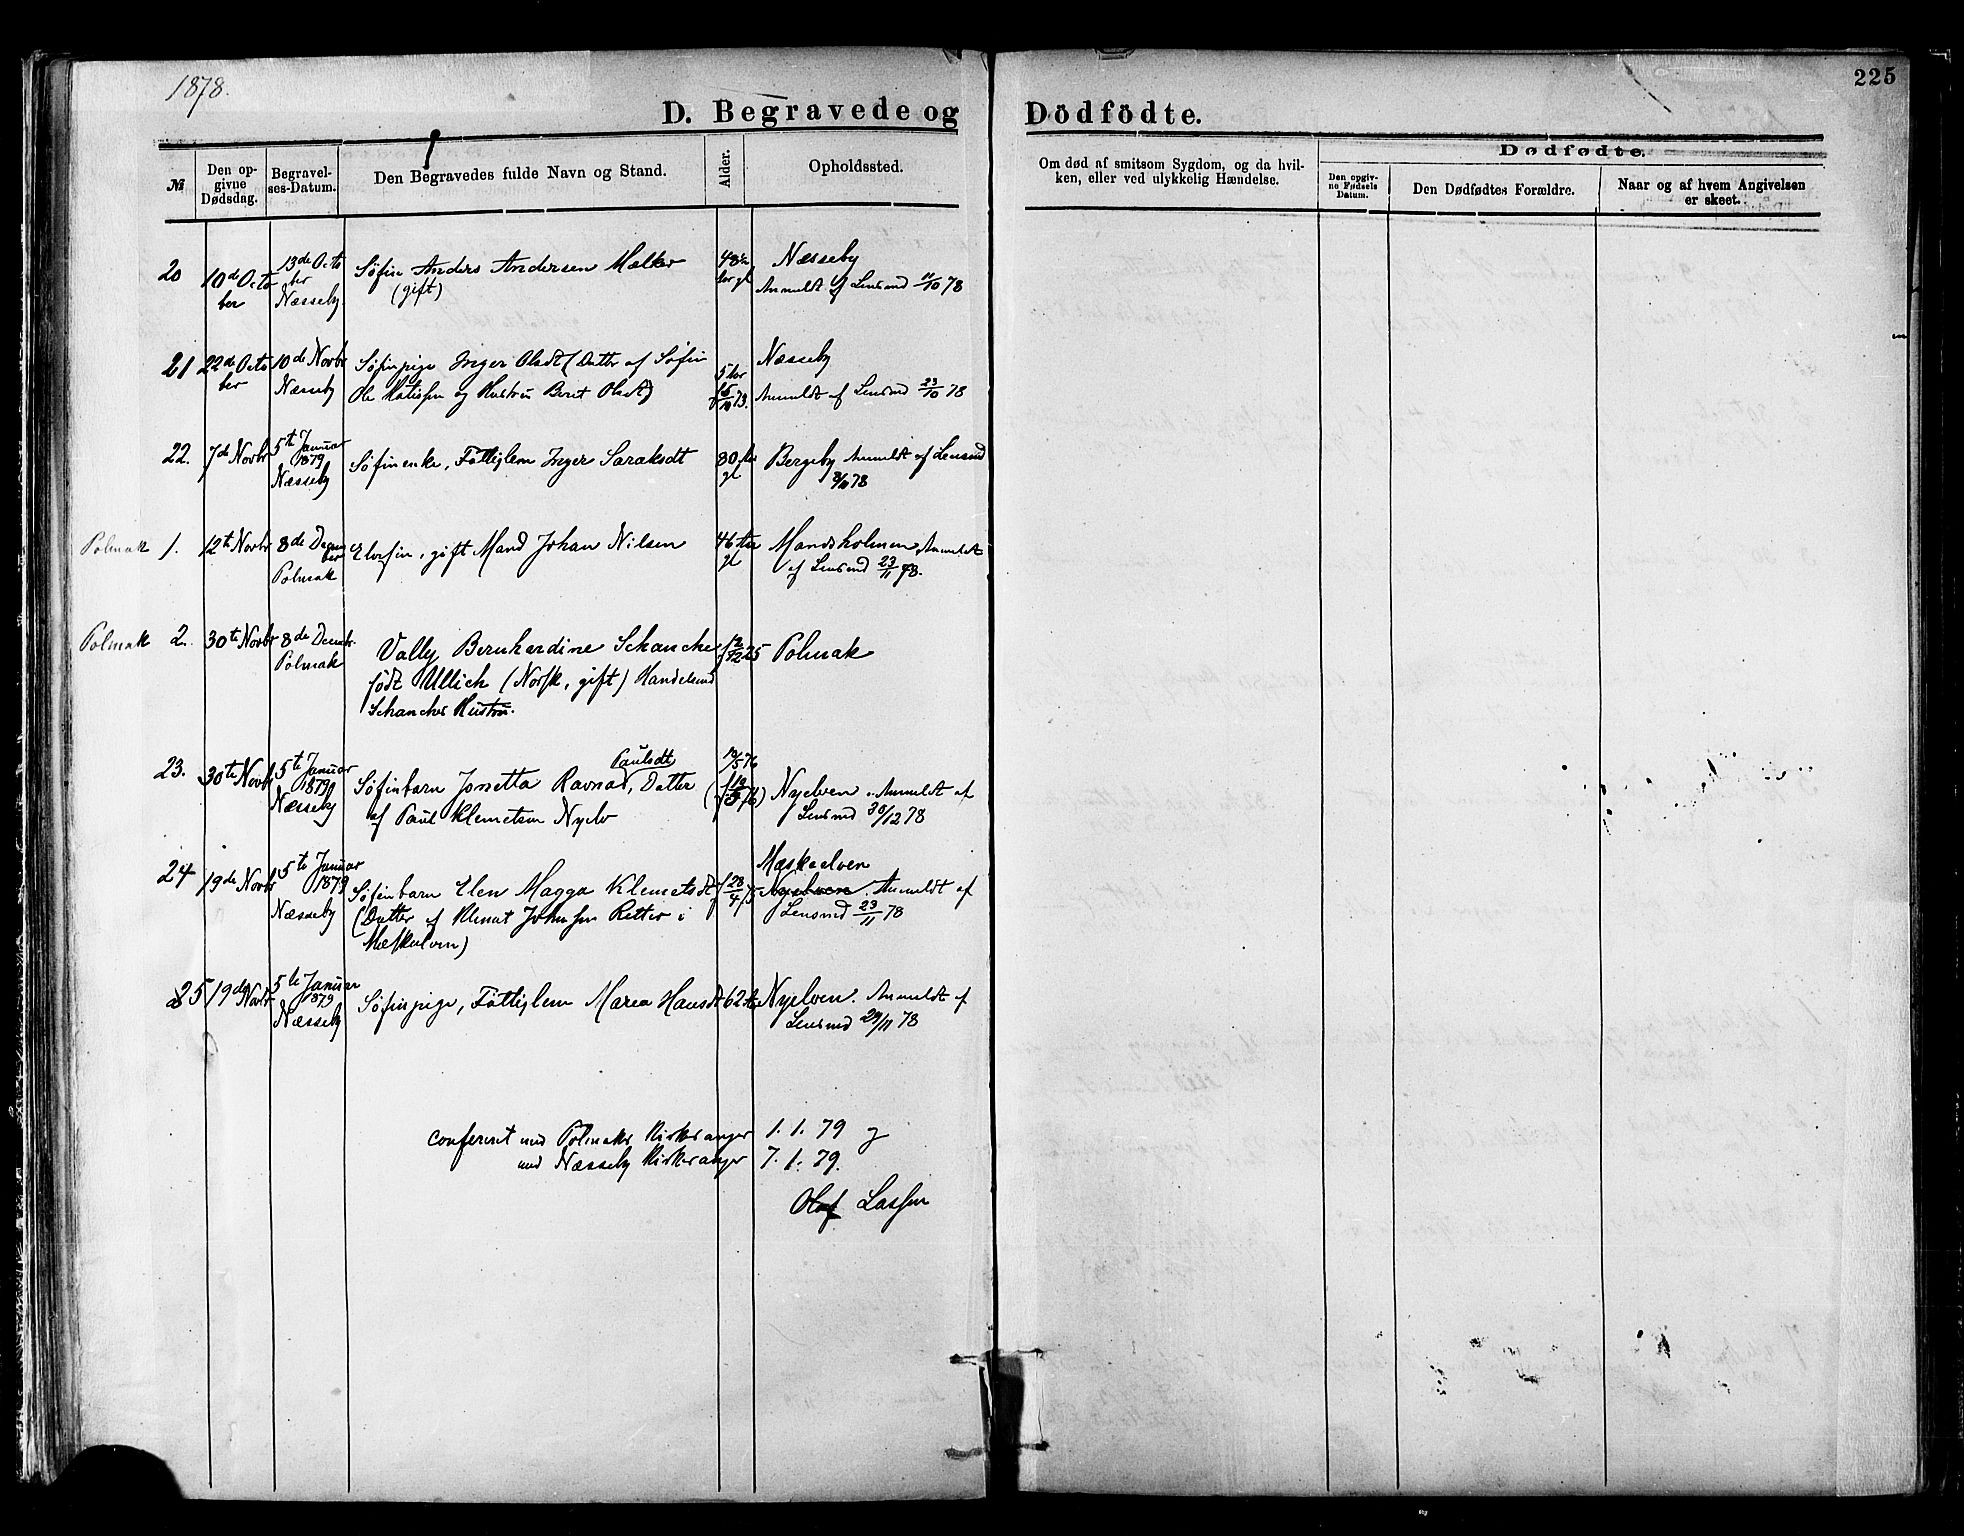 1878.
225
D. Begravede og Dödfödte.
№
Den opgivne Dødsdag.
Begravelses-Datum.
Den Begravedes fulde Navn og Stand.
Alder.
Opholdssted.
Om død af smitsom Sygdom, og da hvilken, eller ved ulykkelig Hændelse.
Dødfødte.
Den opgivne Fødsels Datum.
Den Dødfødtes Forældre.
Naar og af hvem Angivelsen er skeet.
20
10de October
13de October
Næsseby
Søfin Anders Andersen
(gift)
Næsseby
Anmeldt af Lensmd 11/10 78
21
22de October
10de Novbr
Næsseby
Søfinpige Inger Olsdt (Datter af Søfin
Ole Matissen og Hustru Beret Olsdt)
Næsseby
Anmeldt af Lensmd 23/10 78
22.
7de Novbr
5te Januar
1879
Næsseby
Søfinenke, Fattiglem Inger Saraksdt
80 Aar
gl
Bergeby Anmeldt af Lensmd
8/11 78
Polmak 1.
12te Novbr
8de December
Polmak
Elvefin, gift Mand Johan Nilsen
46 Aar
gl
Mandsholmen Anmeldt
af Lensmd 23/11 78.
Polmak 2.
30te Novbr
8de Decembr
Polmak
Vally Bernhardine Schanche
født Ullich (Norsk, gift) Handelsmd
Schanches Hustru.
Polmak
23.
30te Novbr
5te Januar
1879
Næsseby
Paulsdt
Søfinbarn Jonetta Ravna, Datter
af Paul Klemetsen Nyelv
Nyelven. Anmeldt af
Lensmd 30/12 78
24
19de Novbr
5te Januar
1879
Næsseby
Søfinbarn Elen Magga Klemetsdt
(Datter af Klemet Johnsen Retter i
Meskelven)
f 28/4 75
Mæskelven
Nyelven. Anmeldt af
Lensmd 23/11 78
25
19de Novbr
5te Januar
1879
Næsseby
Søfinpige, Fattiglem Marea Hansdt
62 Aar
Nyelven. Anmeldt af
Lensmd 29/11 78
confereret med Polmaks Kirkes anger 1. 1. 79 og
med Næsseby Kirkes anger 7. 1. 79.
Olaf Lassen